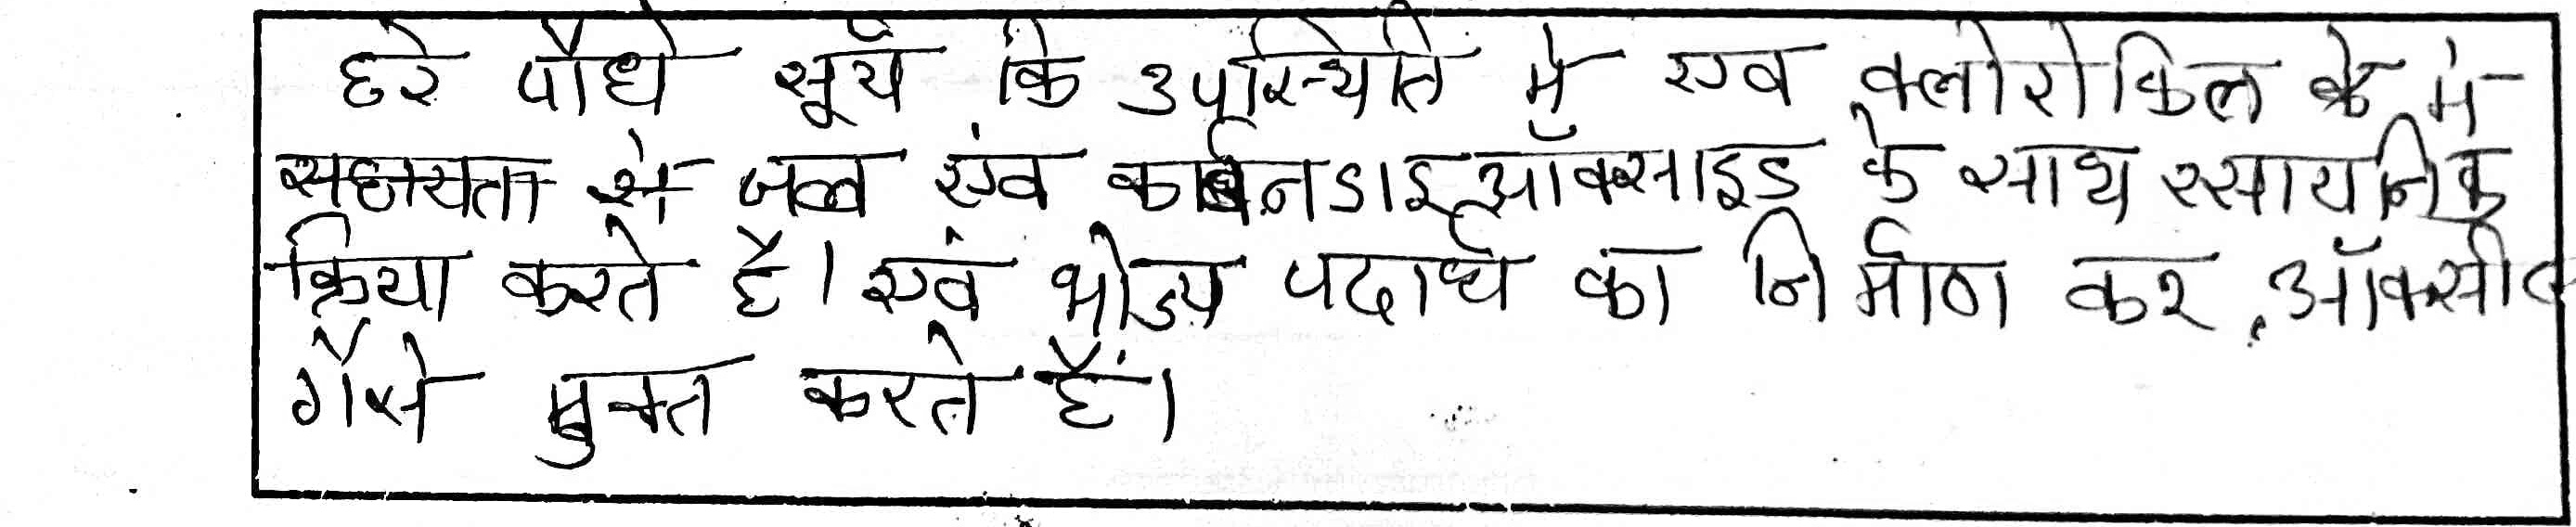 हरे पौधे सूर्य कि उपस्थिति मे एव क्लोरोफिल के मे
सहायता से जल एंव कार्बनडाइऑक्साइड के साथ रसायनिक
क्रिया करते है। एवं भोज्य पदार्थ का निर्माण कर ऑक्सी
गैसे मुक्त करते हैं।